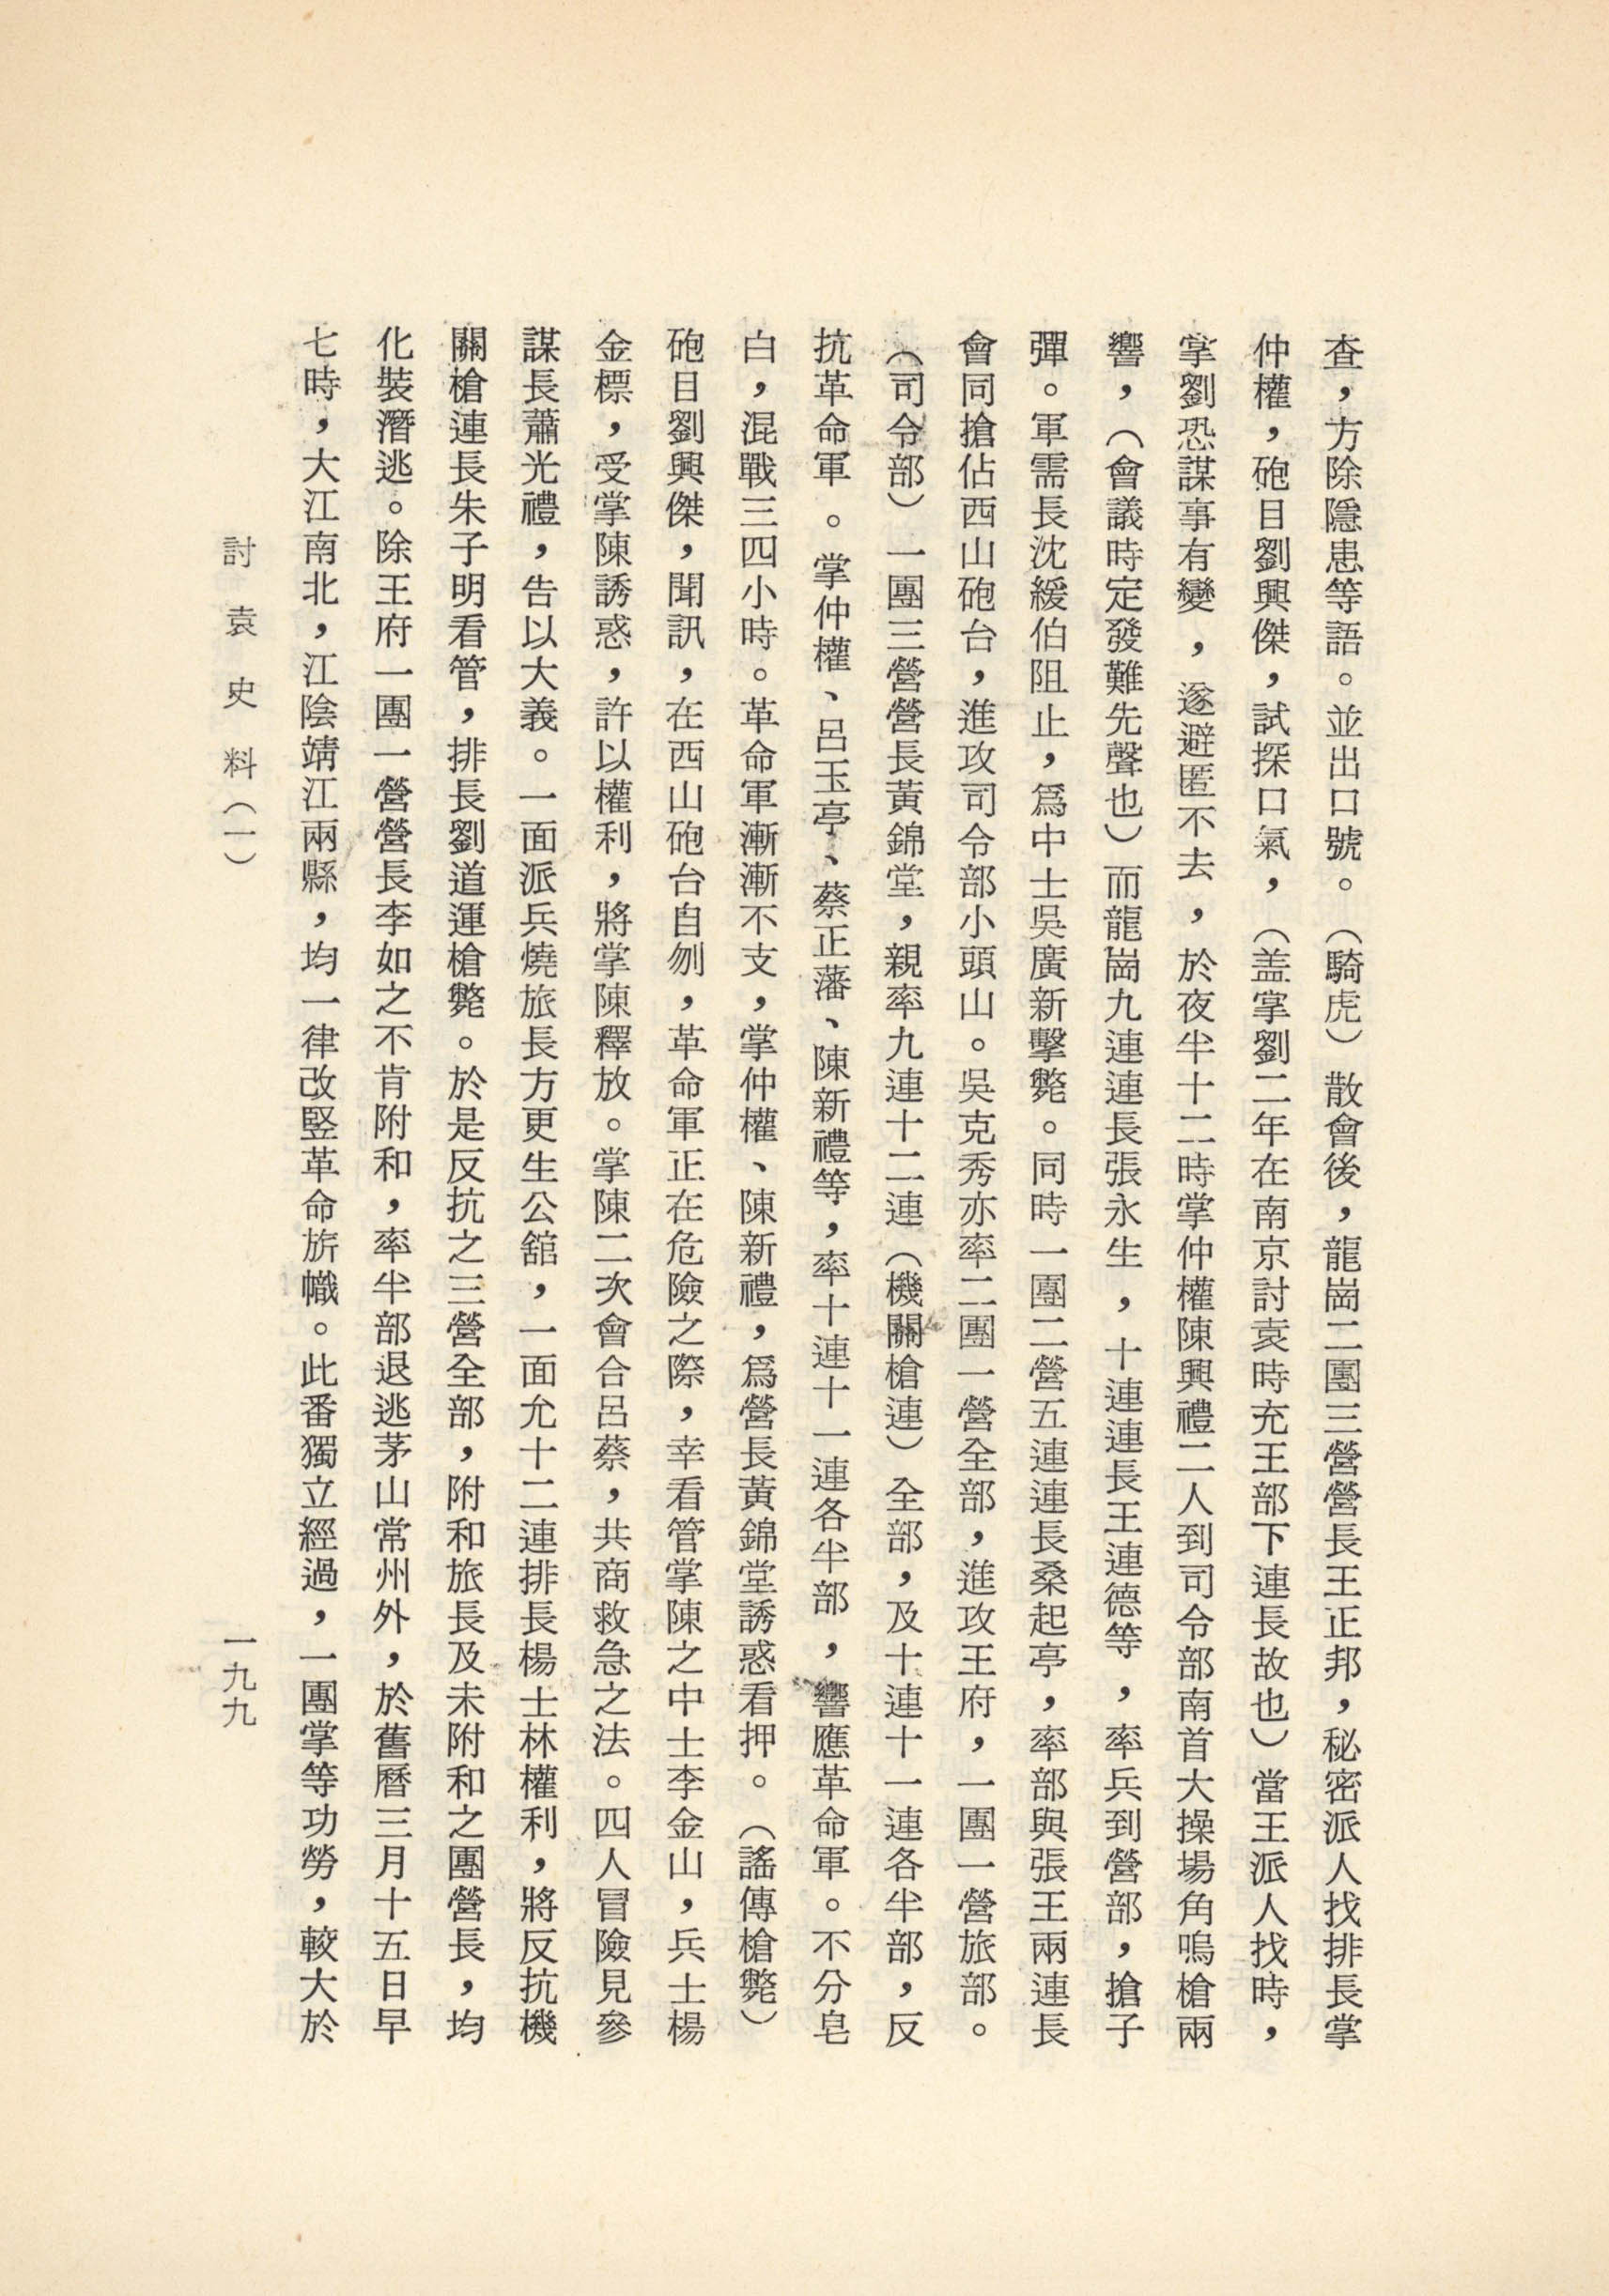 查，方除隱患等語。並出口號。（騎虎）散會後，龍崗二團三營營長王正邦，秘密派人找排長掌
仲權，砲目劉興傑，試探口氣，（盖掌劉二年在南京討袁時充王部下連長故也）當王派人找時，
掌劉恐謀事有變，遂避匿不去，於夜半十二時掌仲權陳興禮二人到司令部南首大操場角鳴槍兩
響，（會議時定發難先聲也）而龍崗九連連長張永生，十連連長王連德等，率兵到營部，搶子
彈。軍需長沈緩伯阻止，爲中士吳廣新擊斃。同時一團二營五連連長桑起亭，率部與張王兩連長
會同搶佔西山砲台，進攻司令部小頭山。吳克秀亦率二團一營全部，進攻王府，一團一營旅部。
（司令部）一團三營營長黃錦堂，親率九連十二連（機關槍連）全部，及十連十一連各半部，反
抗革命軍。掌仲權、呂玉亭、蔡正藩、陳新禮等，率十連十一連各半部，響應革命軍。不分皂
白，混戰三四小時。革命軍漸漸不支，掌仲權、陳新禮，爲營長黃錦堂誘惑看押。（謠傳槍斃）
砲目劉興傑，聞訊，在西山砲台自刎，革命軍正在危險之際，幸看管掌陳之中士李金山，兵士楊
金標，受掌陳誘惑，許以權利，將掌陳釋放。掌陳二次會合呂蔡，共商救急之法。四人冒險見參
謀長蕭光禮，告以大義。一面派兵燒旅長方更生公舘，一面允十二連排長楊士林權利，將反抗機
關槍連長朱子明看管，排長劉道運槍斃。於是反抗之三營全部，附和旅長及未附和之團營長，均
化裝潛逃。除王府一團一營營長李如之不肯附和，率半部退逃茅山常州外，於舊曆三月十五日早
七時，大江南北，江陰靖江兩縣，均一律改竪革命旂幟。此番獨立經過，一團掌等功勞，較大於
討袁史料（一）
一九九